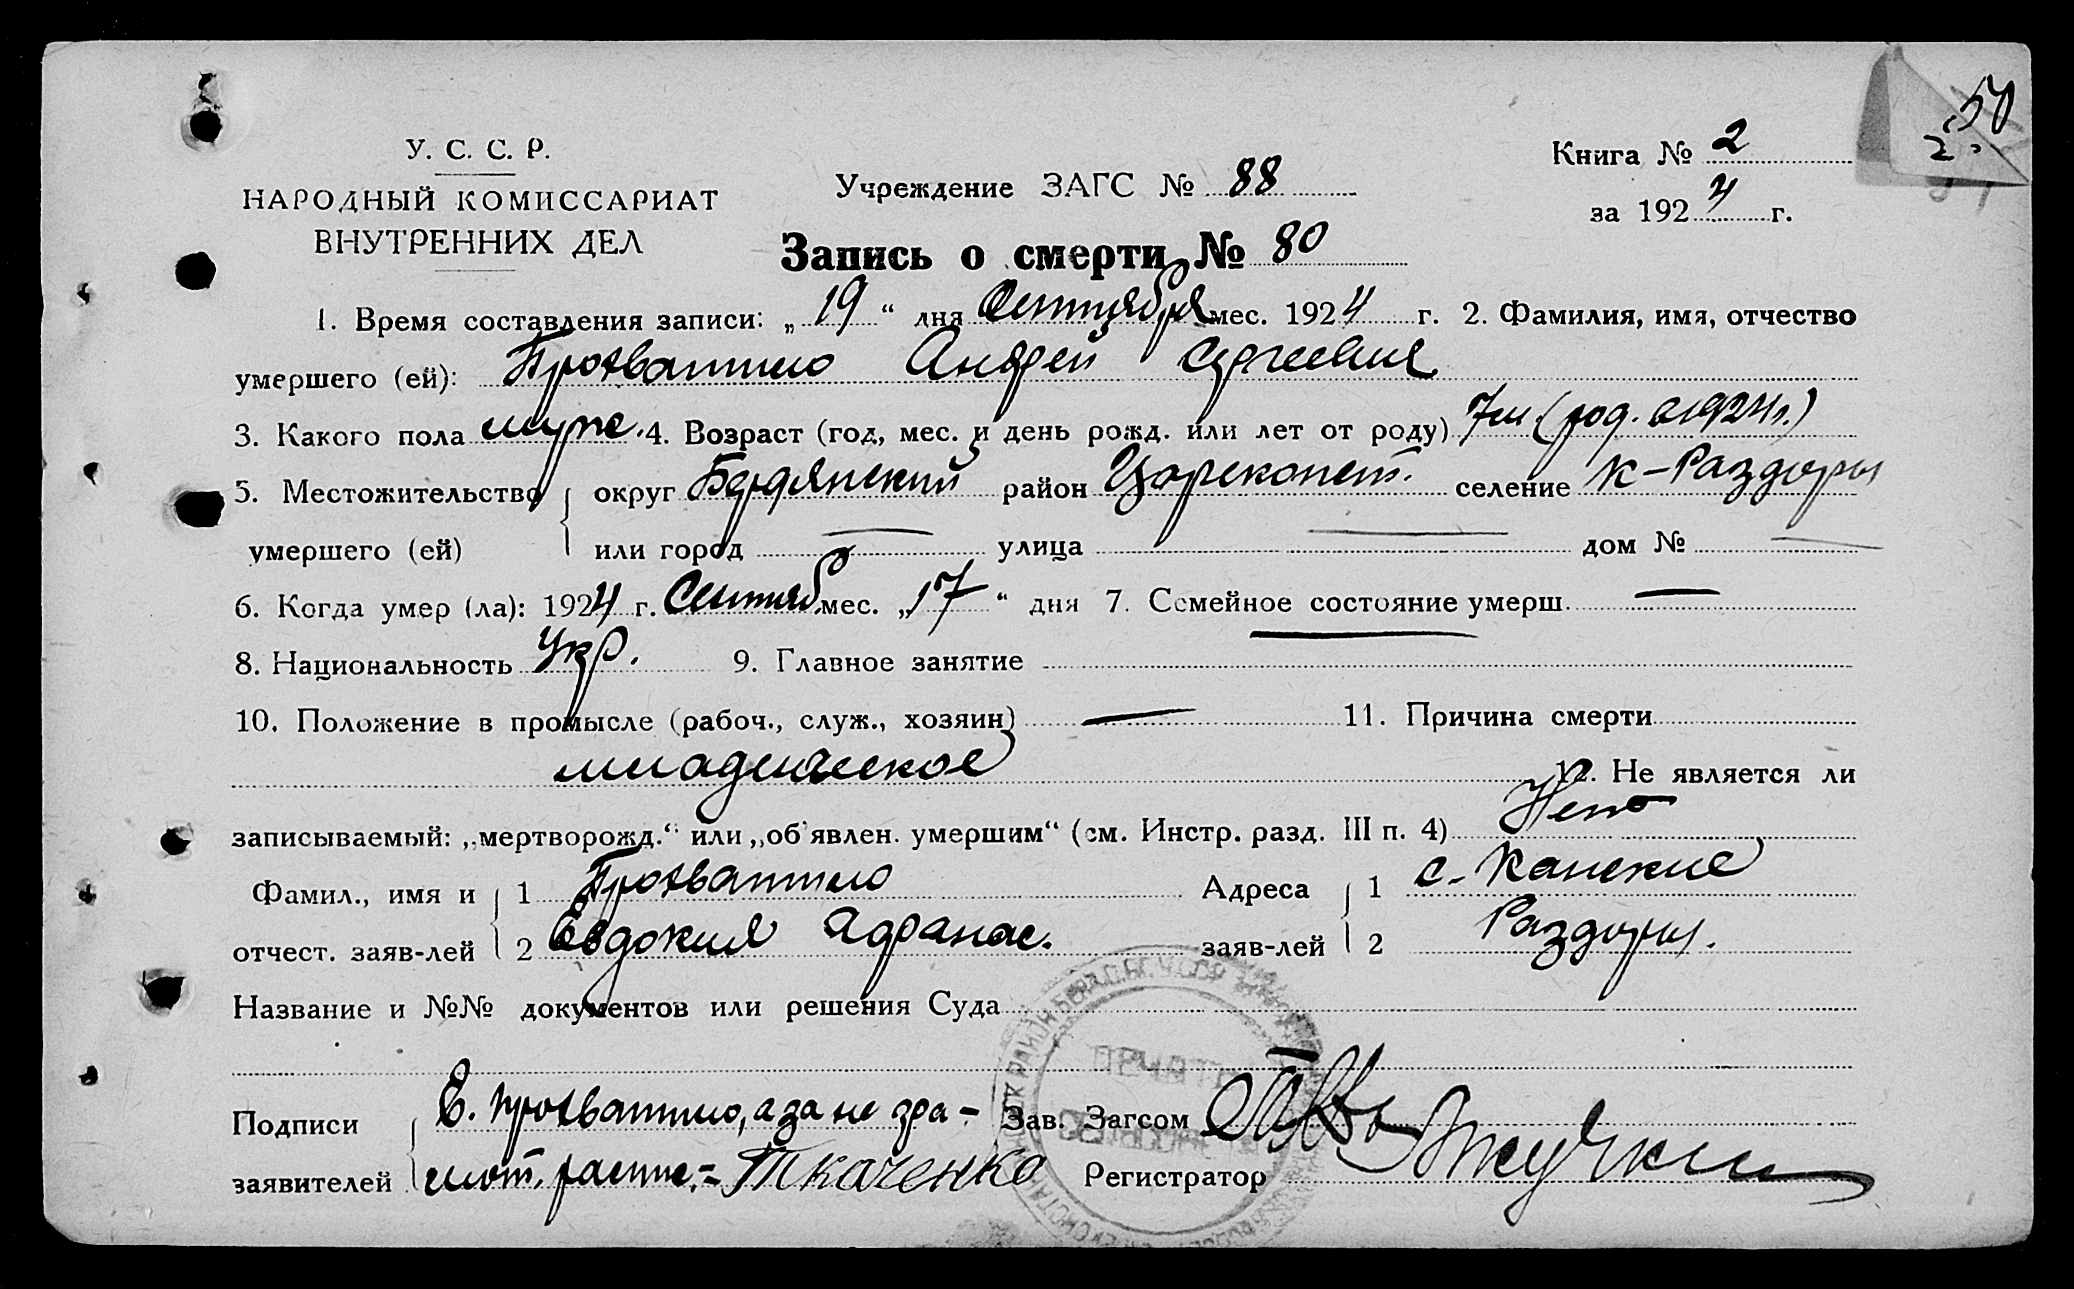 50
2
У. С. С. Р.
НАРОДНЫЙ КОМИССАРИАТ
ВНУТРЕННИХ ДЕЛ
Учреждение ЗАГС № 88
Книга № 2
за 1924 г.
Запись о смерти № 80
1. Время составления записи: „ 19 “ дня Сентября мес. 1924 г. 2. Фамилия, имя, отчество
умершего (ей): Андрей Сергеевич
3. Какого пола муж. 4. Возраст (год, мес. и день рожд. или лет от роду) 7м (род. в 1924г.)
5. Местожительство округ Бердянский район Цареконст. селение К-Раздоры
умершего (ей) или город — улица — дом № —
6. Когда умер (ла): 1924 г. Сентяб. мес. „ 17 “ дня 7. Семейное состояние умерш. —
8. Национальность Укр. 9. Главное занятие —
10. Положение в промысле (рабоч., служ., хозяин) — 11. Причина смерти
младенческое 12. Не является ли
записываемый: „мертворожд.“ или „об'явлен. умершим“ (см. Инстр. разд. III п. 4) Нет
Фамил., имя и 1 Адреса 1 с. Канские
отчест. заяв-лей 2 Евдокия Афанас. заяв-лей 2 Раздоры.
Название и №№ документов или решения Суда
Подписи Е. а за не гра- Зав. Загсом
заявителей мот. распис.= Ткаченко Регистратор
ПЕЧАТЬ